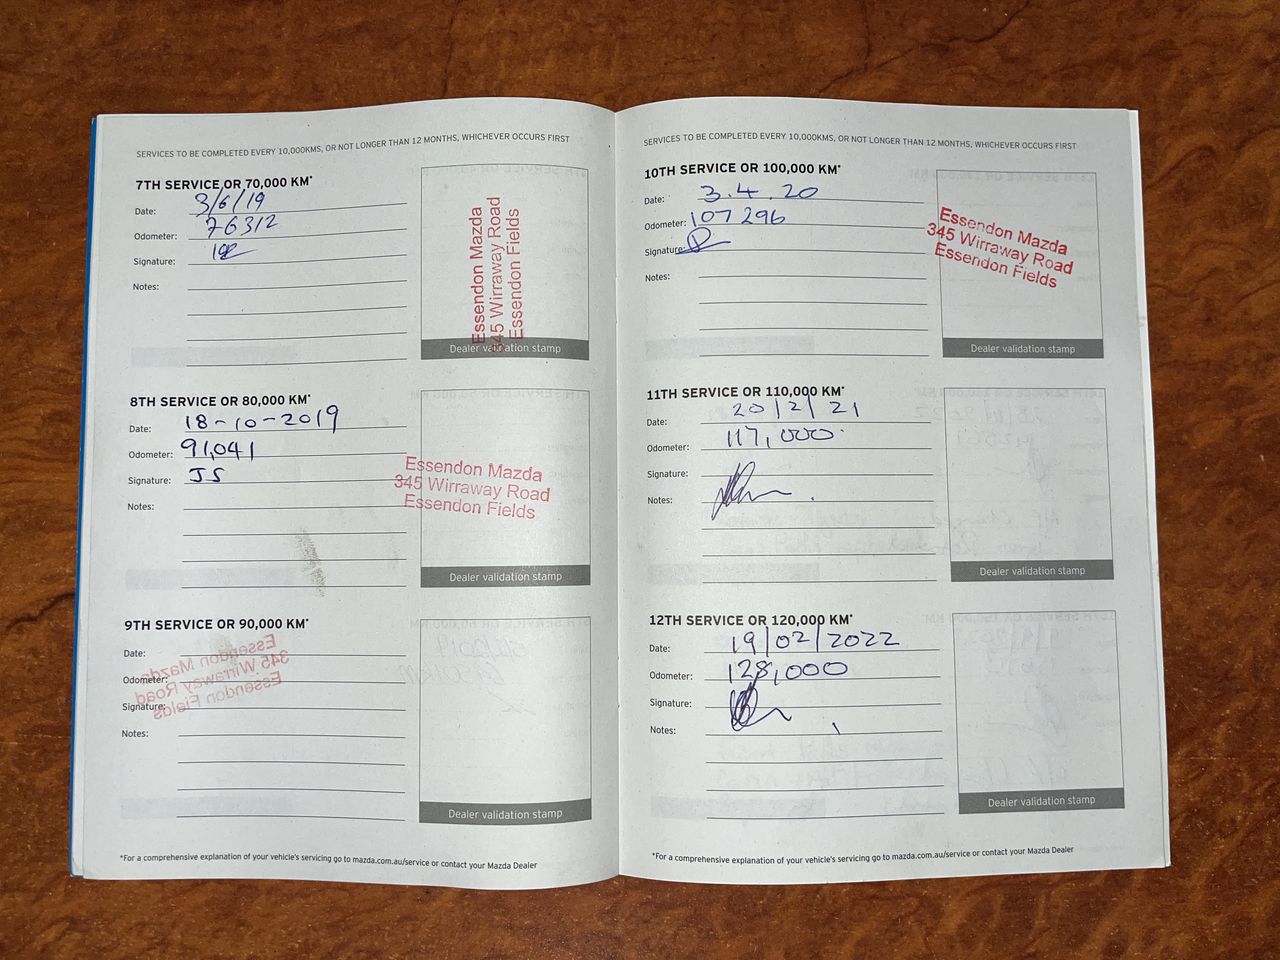 SERVICES TO BE COMPLETED EVERY 10,000KMS, OR NOT LONGER THAN 12 MONTHS, WHICHEVER OCCURS FIRST
7TH SERVICE OR 70,000 KM*
Date: 3/6/19
Odometer: 76312
Signature:
Notes:
Essendon Mazda
345 Wirraway Road
Essendon Fields
Dealer validation stamp
8TH SERVICE OR 80,000 KM*
Date: 18-10-2019
Odometer: 91,041
Signature: JS
Notes:
Essendon Mazda
345 Wirraway Road
Essendon Fields
Dealer validation stamp
9TH SERVICE OR 90,000 KM*
Date:
Odometer:
Signature:
Notes:
Essendon Mazda
345 Wirraway Road
Essendon Fields
Dealer validation stamp
*For a comprehensive explanation of your vehicle's servicing go to mazda.com.au/service or contact your Mazda Dealer
SERVICES TO BE COMPLETED EVERY 10,000KMS, OR NOT LONGER THAN 12 MONTHS, WHICHEVER OCCURS FIRST
10TH SERVICE OR 100,000 KM*
Date: 3.4.20
Odometer: 107296
Signature:
Notes:
Essendon Mazda
345 Wirraway Road
Essendon Fields
Dealer validation stamp
11TH SERVICE OR 110,000 KM*
Date: 20/2/21
Odometer: 117,000
Signature:
Notes:
Dealer validation stamp
12TH SERVICE OR 120,000 KM*
Date: 19/02/2022
Odometer: 128,000
Signature:
Notes:
Dealer validation stamp
*For a comprehensive explanation of your vehicle's servicing go to mazda.com.au/service or contact your Mazda Dealer